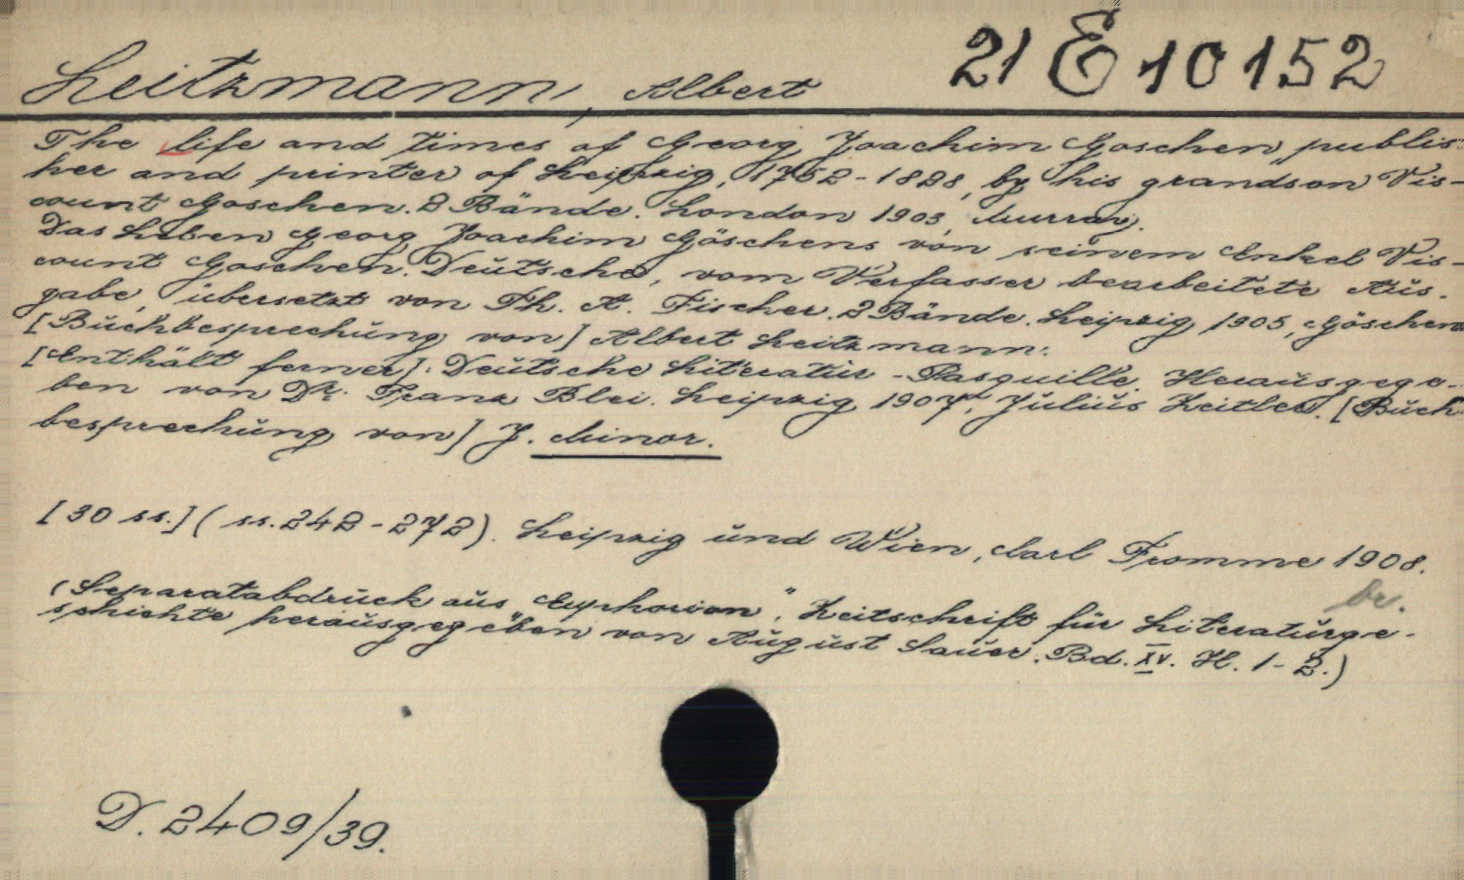 21 E 10152
Leitzmann, Albert
The life and times of Georg Joachim Goschen, publis-
her and printer of Leipzig, 1752-1828, by his grandson Vis-
count Goschen. 2 Bände. London 1903, Murray.
Das Leben Georg Joachim Göschens von seinem Enkel Vis-
count Goschen. Deutsche, vom Verfasser bearbeitete Aus-
gabe, übersetzt von Th. A. Fischer. 2 Bände. Leipzig, 1905, Göschen
[Buchbesprechung von] Albert Leitzmann.
[Enthält ferner]: Deutsche Literatur-Pasquille. Herausgege-
ben von Dr. Franz Blei. Leipzig 1907, Julius Zeitler. [Buch-
besprechung von] J. Minor.
[30 ss.] (ss. 242-272). Leipzig und Wien, Carl Fromme 1908.
br.
(Separatabdruck aus „Euphorion", Zeitschrift für Literaturge-
schichte herausgegeben von August Sauer. Bd. XV. H. 1-2.)
D. 2409/39.